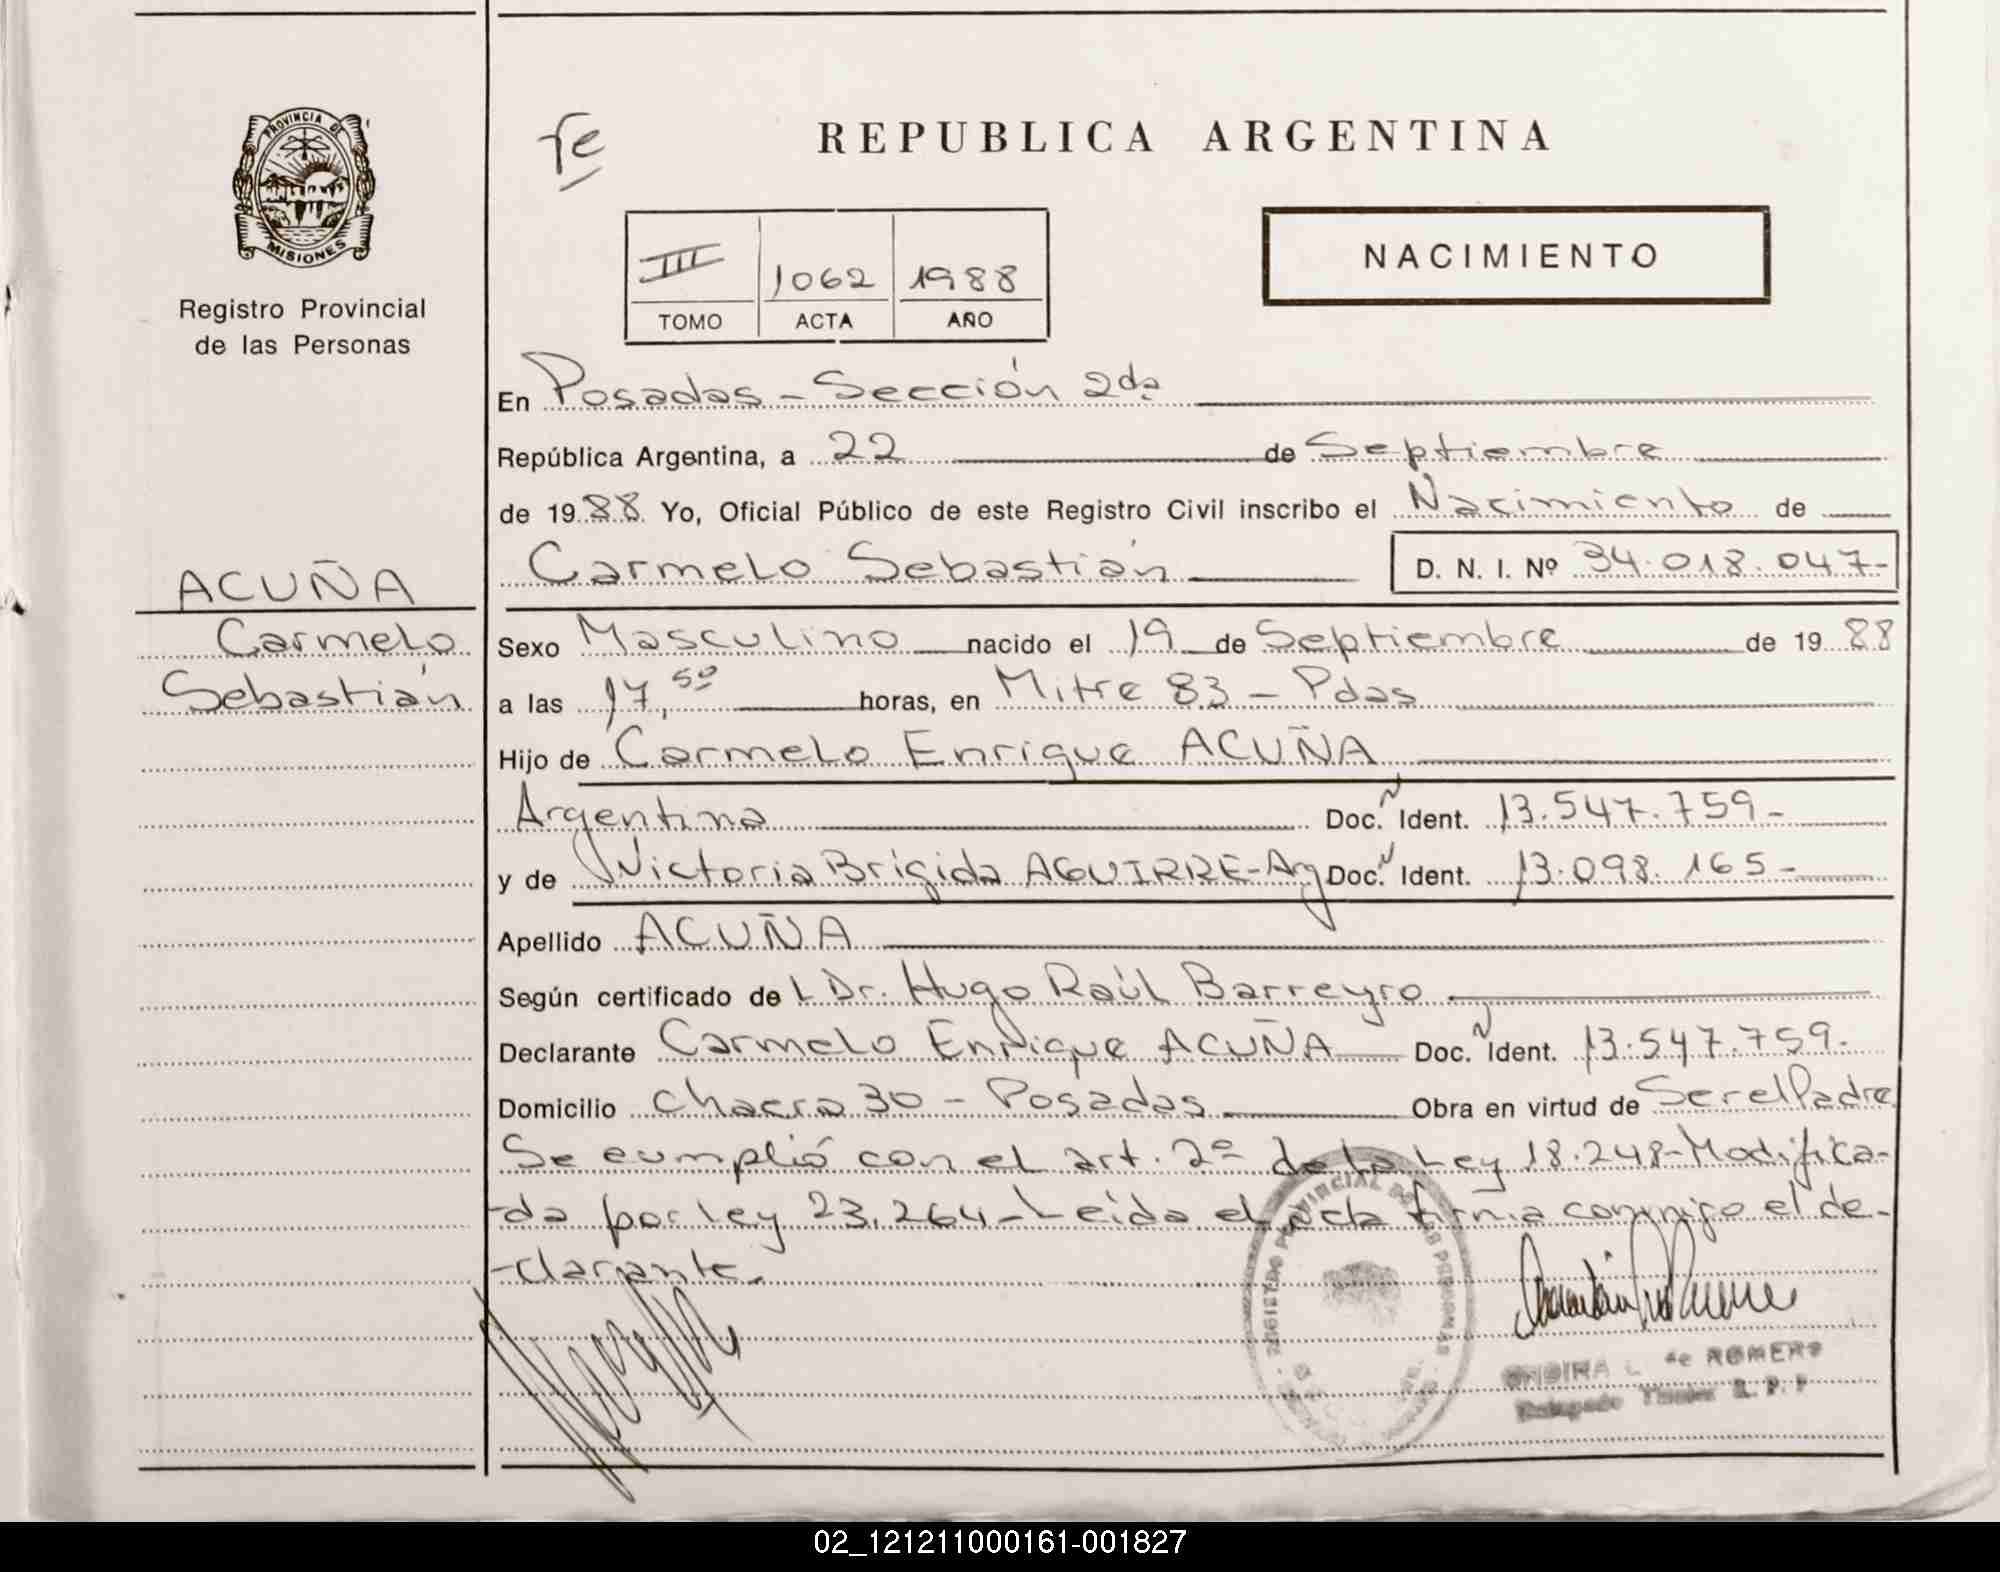 PROVINCIA DE
MISIONES
Registro Provincial
de las Personas
ACUÑA
Carmelo
Sebastián
REPUBLICA ARGENTINA
NACIMIENTO
III 1062 1988
TOMO ACTA AÑO
En Posadas - Sección 2da.
República Argentina, a 22 de Septiembre
de 1988 Yo, Oficial Público de este Registro Civil inscribo el Nacimiento de
Carmelo Sebastián D. N. I. Nº 34.018.047-
Sexo Masculino nacido el 19 de Septiembre de 1988
a las 17,50 horas, en Mitre 83 - Pdas
Hijo de Carmelo Enrique ACUÑA
Argentina Doc. Ident. 13.547.759-
y de Victoria Brígida AGUIRRE-Arg Doc. Ident. 13.098.165-
Apellido ACUÑA
Según certificado del Dr. Hugo Raúl Barreyro
Declarante Carmelo Enrique ACUÑA Doc. Ident. 13.547.759-
Domicilio Chacra 30 - Posadas Obra en virtud de Ser el Padre
Se cumplió con el art. 2º de la Ley 18.248-Modifica-
-da por ley 23.264-Leída el acta firma conmigo el de-
-clarante.
REGISTRO PROVINCIAL DE LAS PERSONAS
L. de ROMERO
02_121211000161-001827